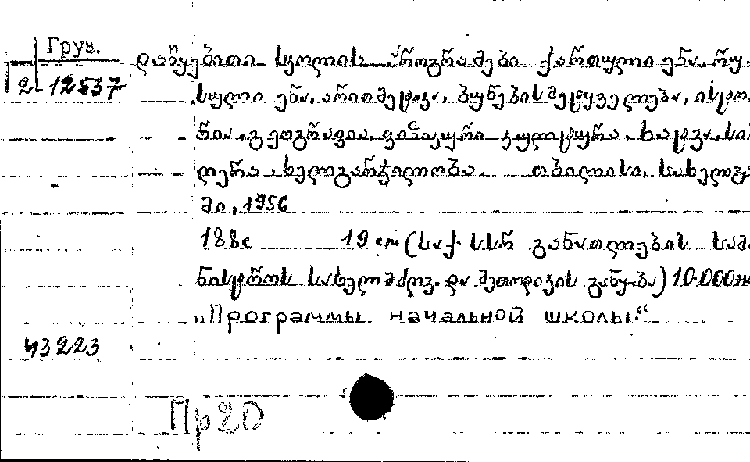 Груз.
2 12537
დაწყებითი სკოლის პროგრამები ქართული ენა. რუ-
სული ენა, არითმეტიკა, ბუნებისმეტყველება, ისტო
რია, გეოგრაფია, ფიზიკური კულტურა, ხატვა, სიმ
ღერა ხელგარჯილობა თბილისი, სახელგა
მი, 1956
188с 19 см (საქ. სსრ განათლების სამი
ნისტროს სასწ. და მეთოდიკის განყ-ბა) 10.000
„Программы начальной школы“
43223
Пр20